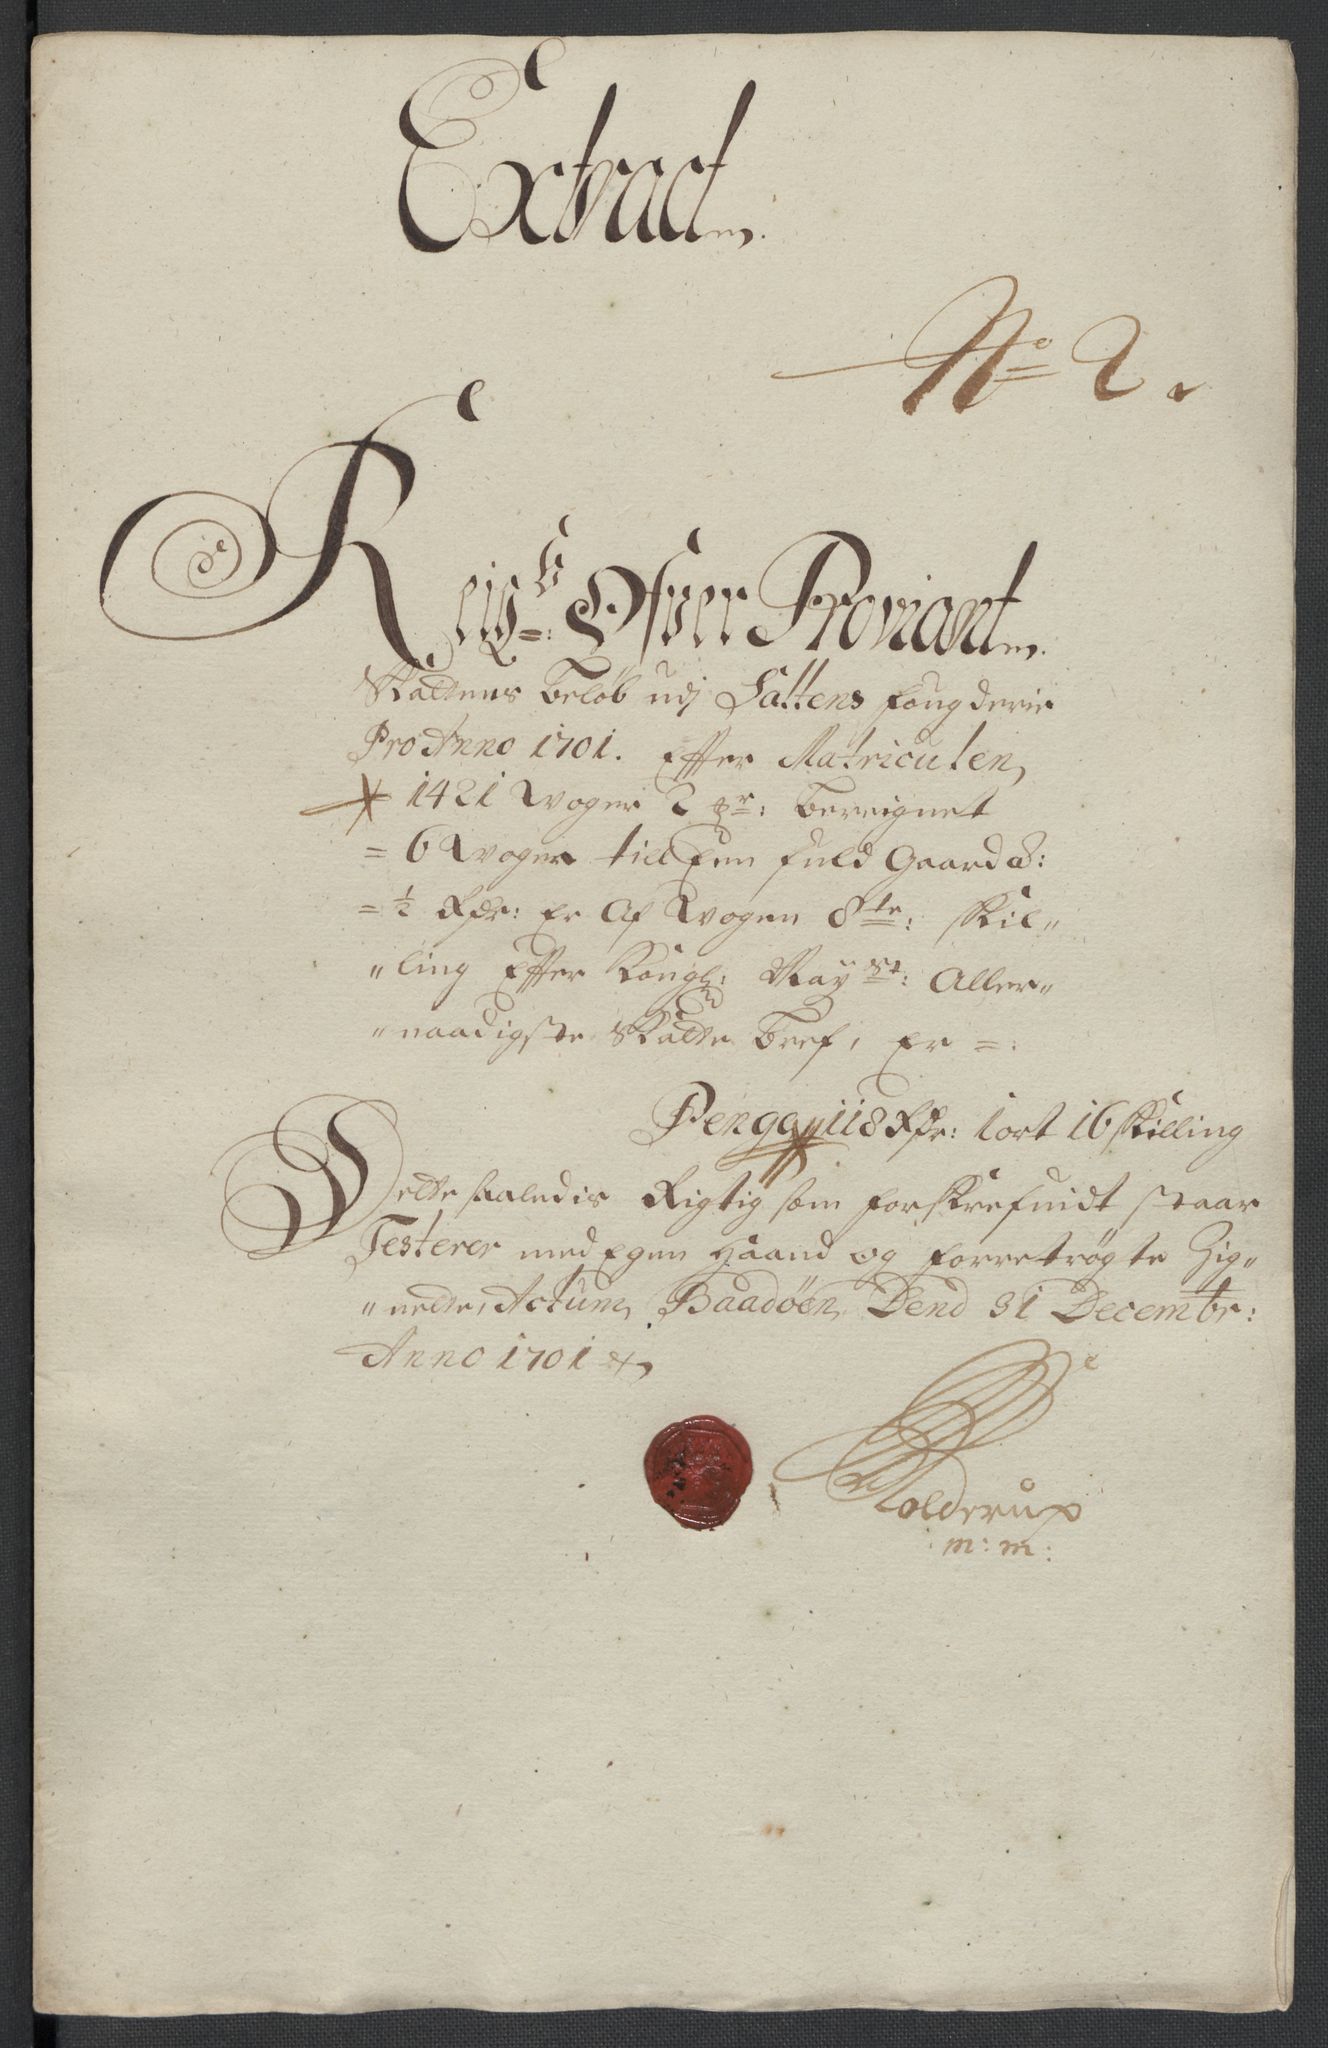 Extract
No 2.
Reigr: Ofver Proviant
Skattens Beløb udj Saltens fougderie
Pro Anno 1701. Effter Matriculen
1421 Woger 2 pr: bereignet
= 6 Woger till Een fuld Gaard a:
= ½ Rdr: Er Af Wogen 8te: skil„
„ling Effter Kongl: May st: Aller„
„naadigste Skatte Bref, Er =:
Penge 118 Rdr: 1 ort 16 skilling
Dette saaledis Rigtig som forskrefuidt staar
Testerer med Egen Haand og forretrøgte Zig„
„nette, Actum, Baadøen, Dend 31 Decembr:
Anno 1701
Kolderup
m: m: